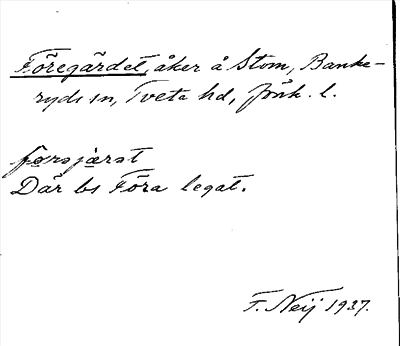 Föregärdet, åker å Stom, Banke-
ryds sn, Tveta hd, Jönk. l.
Där bs Föra legat.
F. Neij 1937.